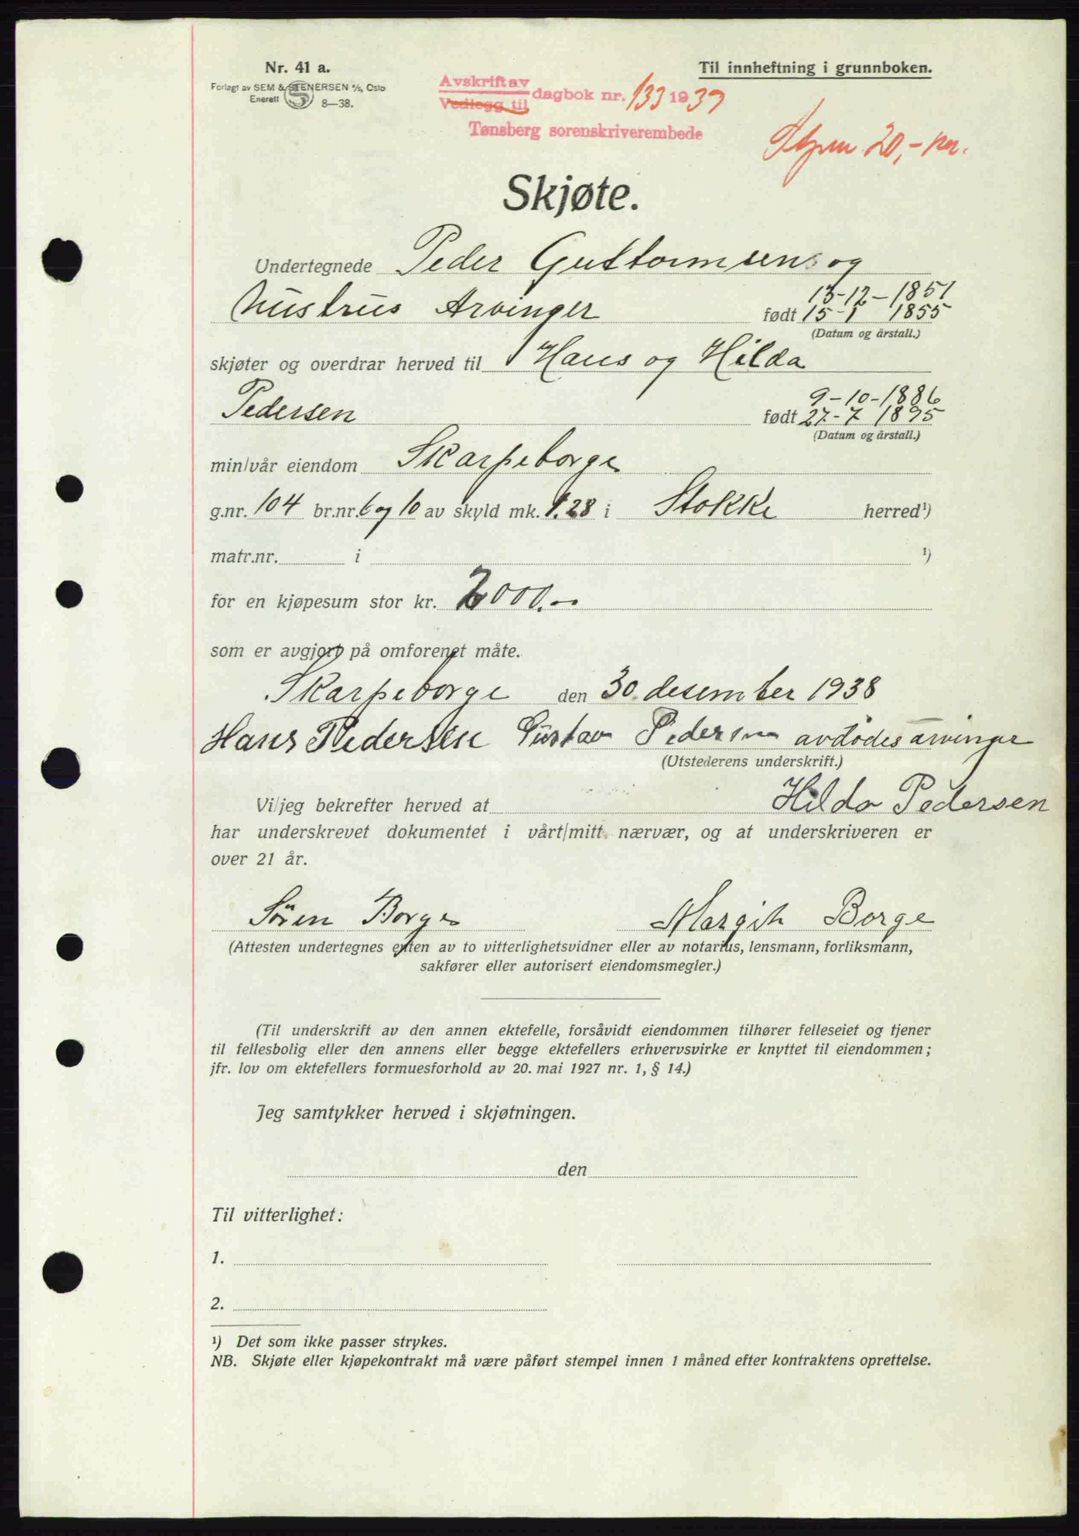 Nr. 41 a.
Forlagt av SEM & STENERSEN A/S, Oslo
Enerett 8—38.
Avskrift av
Vedlegg til dagbok nr. 133 1939
Tønsberg sorenskriverembede
Til innheftning i grunnboken.
20,- kr.
Skjøte.
Undertegnede Peder Guttormsens og
hustrus Arvinger født 13-12-1851
15-1 1855
(Datum og årstall.)
skjøter og overdrar herved til Hans og Hilda
Pedersen født 9-10-1886
27-7 1895
(Datum og årstall.)
min/vår eiendom Skarpeborge
g.nr. 104 br.nr. 6 og 10 av skyld mk. 1.28 i Stokke herred¹)
matr.nr. i ¹)
for en kjøpesum stor kr. 2000.—
som er avgjort på omforenet måte.
Skarpeborge den 30. desember 1938
Hans Pedersen Gustav Pedersen avdødes arvinger
(Utstederens underskrift.)
Hilda Pedersen
Vi/jeg bekrefter herved at
har underskrevet dokumentet i vårt/mitt nærvær, og at underskriveren er
over 21 år.
Sören Borge Margit Borge
(Attesten undertegnes enten av to vitterlighetsvidner eller av notarius, lensmann, forliksmann,
sakfører eller autorisert eiendomsmegler.)
(Til underskrift av den annen ektefelle, forsåvidt eiendommen tilhører felleseiet og tjener
til fellesbolig eller den annens eller begge ektefellers erhvervsvirke er knyttet til eiendommen;
jfr. lov om ektefellers formuesforhold av 20. mai 1927 nr. 1, § 14.)
Jeg samtykker herved i skjøtningen.
den
Til vitterlighet:
1.
2.
¹) Det som ikke passer strykes.
NB. Skjøte eller kjøpekontrakt må være påført stempel innen 1 måned efter kontraktens oprettelse.